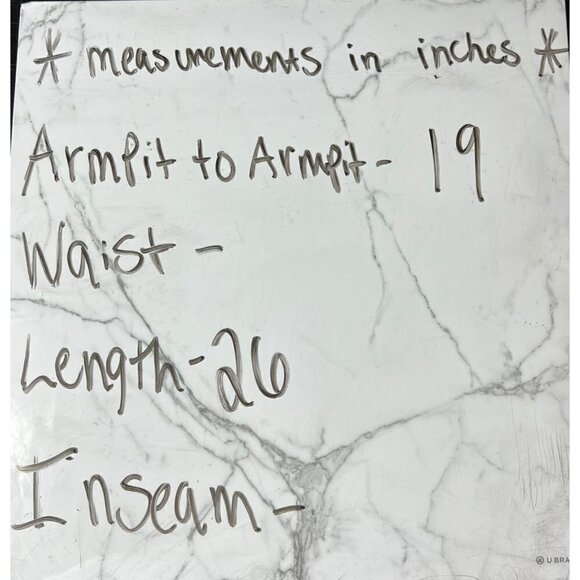 * measurements in inches *
Armpit to Armpit - 19
Waist -
Length - 26
Inseam -
U BRA